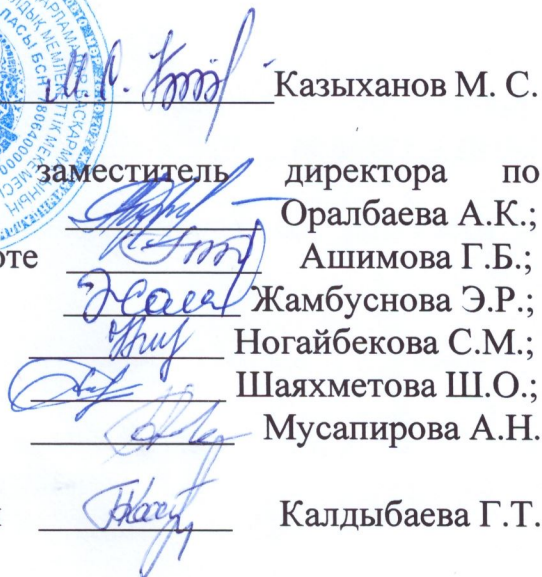 Казыханов М. С.
заместитель директора по
Оралбаева А.К.;
оте Ашимова Г.Б.;
Жамбуснова Э.Р.;
Ногайбекова С.М.;
Шаяхметова Ш.О.;
Мусапирова А.Н.
Калдыбаева Г.Т.